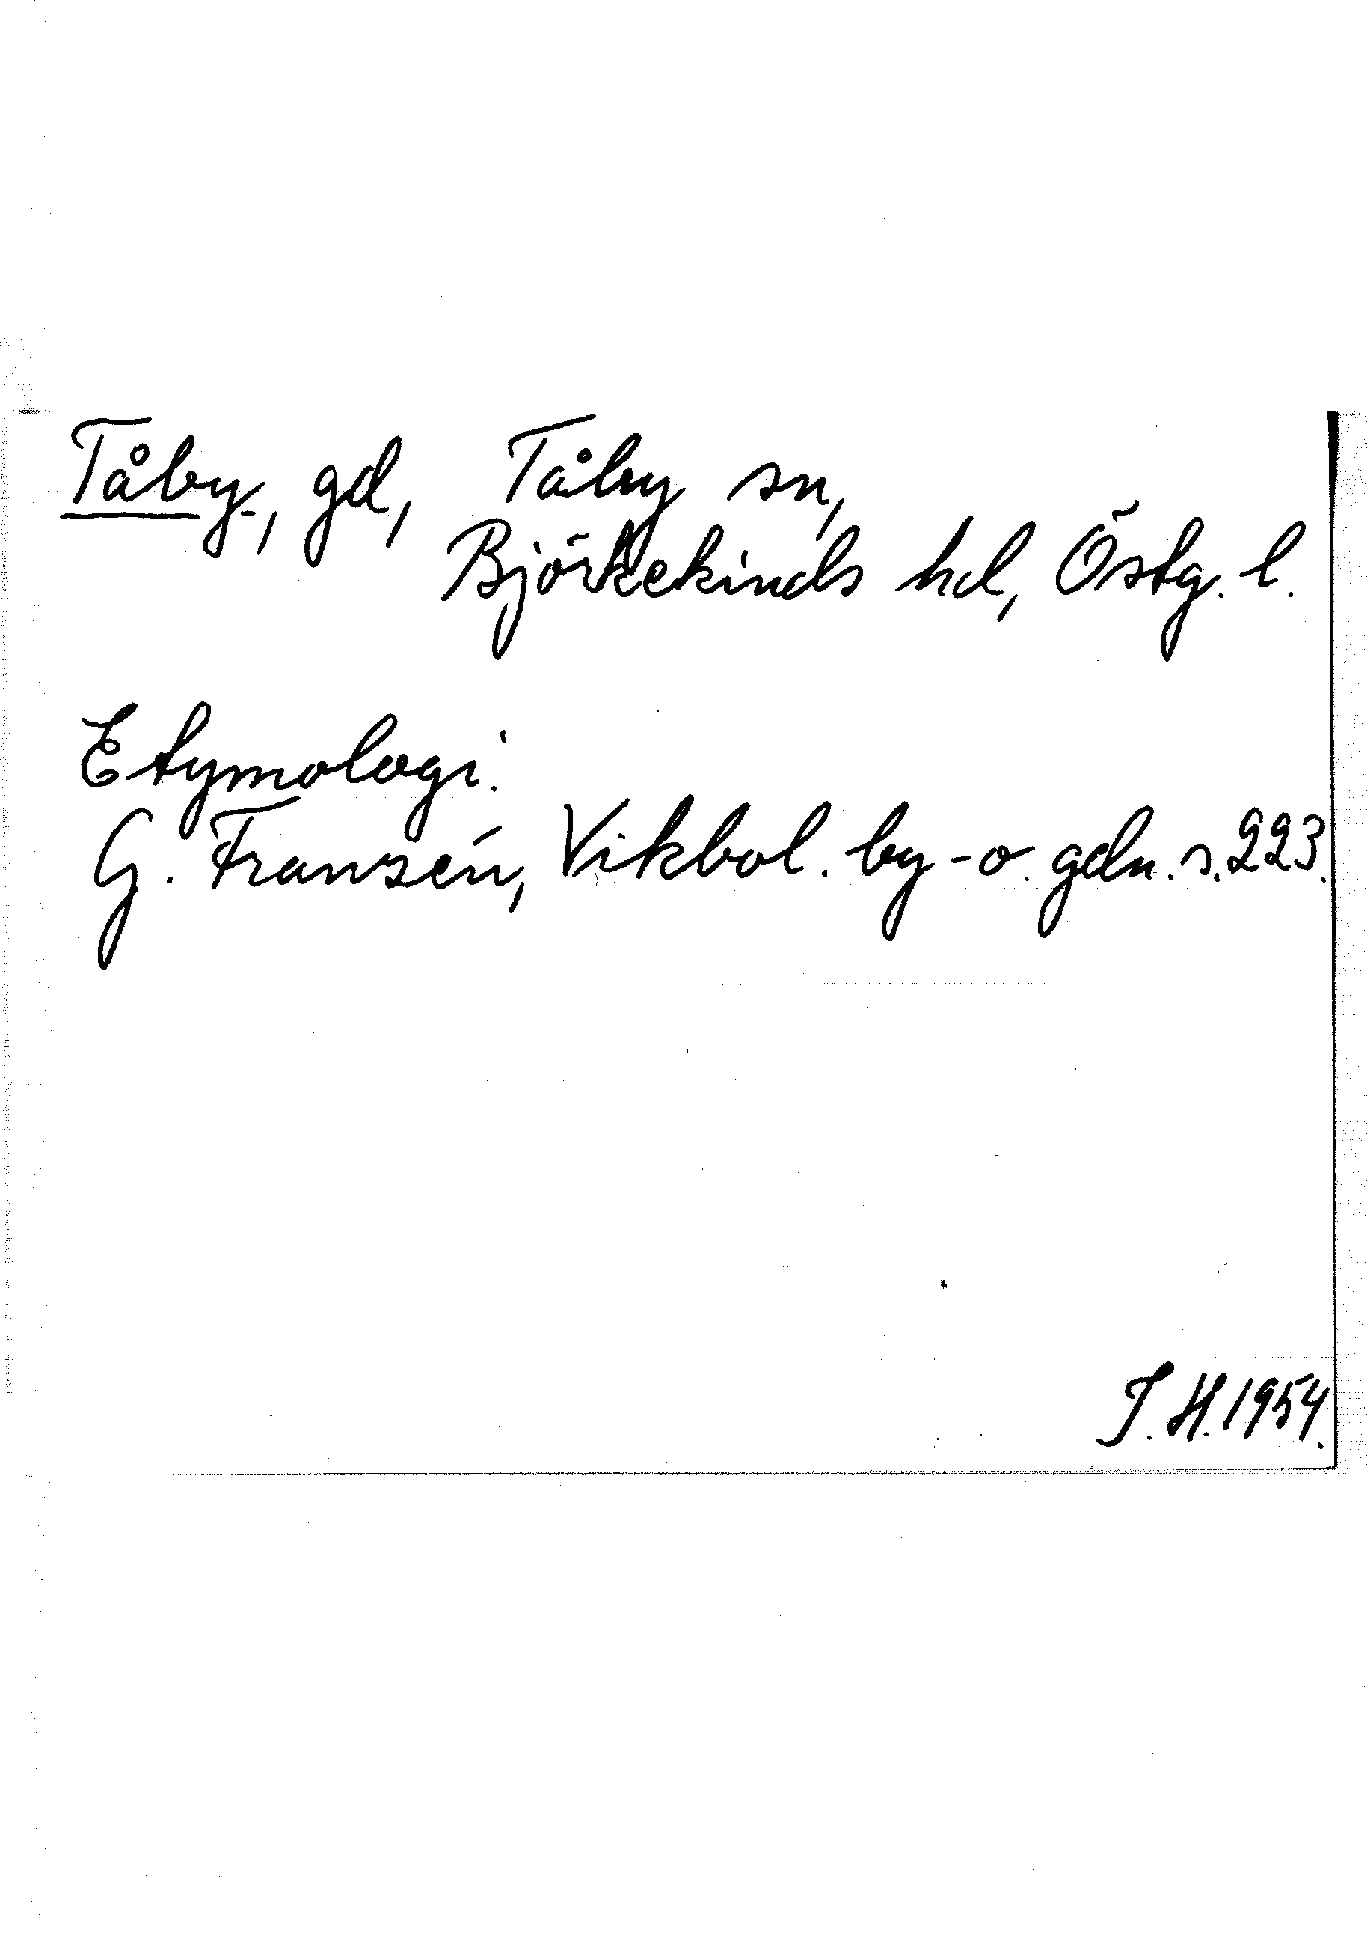 Tåby, gd, Tåby sn,
Björkekinds hd, Östg. l.
Etymologi.
G. Franzén, Vikbol. by- o. gdn. s. 223.
J. H. 1954.